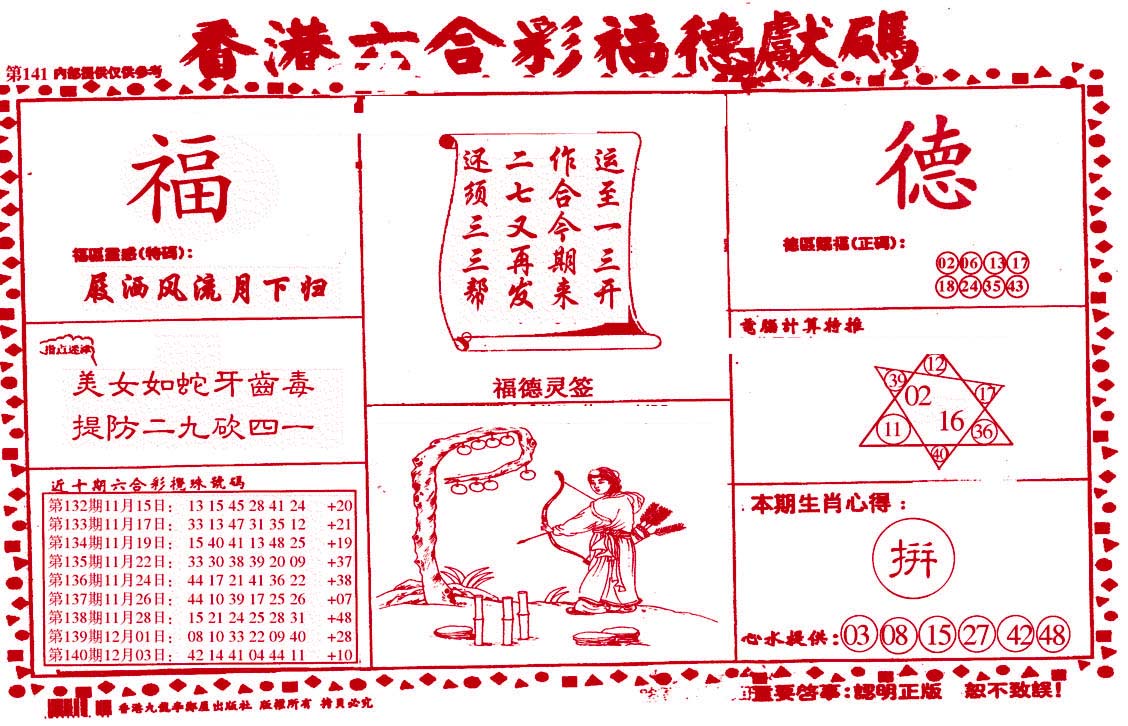 香港六合彩福德獻碼
第141 內部提供仅供參考
福
福區靈感(特碼):
屐洒风流月下归
指点迷津
美女如蛇牙齒毒
提防二九砍四一
近十期六合彩攪珠號碼
第132期11月15日: 13 15 45 28 41 24 +20
第133期11月17日: 33 13 47 31 35 12 +21
第134期11月19日: 15 40 41 13 48 25 +19
第135期11月22日: 33 30 38 39 20 09 +37
第136期11月24日: 44 17 21 41 36 22 +38
第137期11月26日: 44 10 39 17 25 26 +07
第138期11月28日: 15 21 24 25 28 31 +48
第139期12月01日: 08 10 33 22 09 40 +28
第140期12月03日: 42 14 41 04 44 11 +10
运至一三开
作合今期来
二七又再发
还须三三帮
福德灵签
德
德區賜福(正碼):
02 06 13 17
18 24 35 43
電腦計算特推
12
39 02 17
11 16 36
40
本期生肖心得:
拼
心水提供: 03 08 15 27 42 48
香港九龍 出版社 版權所有 拷貝必究
重要啓事:認明正版 恕不致誤!